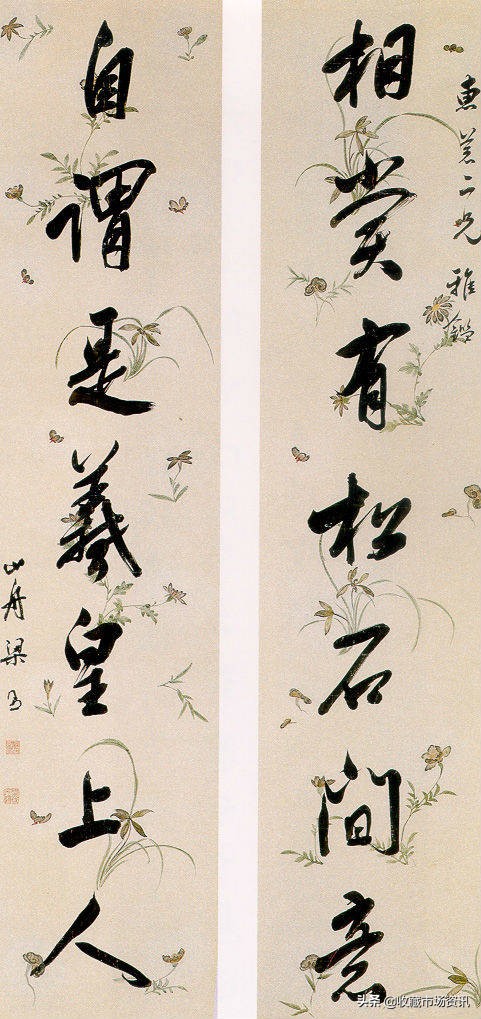 惠 二兄 雅鑑
相賞有松石間意
自謂是羲皇上人
山舟梁
头条 @收藏市场资讯